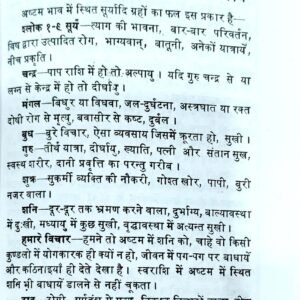 अष्टम भाव में स्थित सूर्यादि ग्रहों का फल इस प्रकार है—
श्लोक १-९ सूर्य—त्याग की भावना, बार-बार परिवर्तन,
विष द्वारा उत्पादित रोग, भाग्यवान्, बातूनी, अनेकों यात्रायें,
नीच प्रकृति।
चन्द्र—पाप राशि में हो तो अल्पायु। यदि गुरु चन्द्र से या
लग्न से केन्द्र में हो तो दीर्घायु।
मंगल—बिधुर या विधवा, जल-दुर्घटना, अस्त्रघात या रक्त
दोषी रोग से मृत्यु, बवासीर से कष्ट, दुर्बल।
बुध—बुरे विचार, ऐसा व्यवसाय जिसमें क्रूरता हो, सुखी।
गुरु—तीर्थ यात्रा, दीर्घायु, ख्याति, पत्नी और संतान सुख,
स्वस्थ शरीर, दानी प्रवृत्ति का परन्तु गरीब।
शुक्र—सुकर्मी व्यक्ति की नौकरी, गोश्त खोर, पापी, बुरी
नजर वाला।
शनि—दूर-दूर तक भ्रमण करने वाला, दुर्भाग्य, बाल्यावस्था
में दुःखी, मध्यायु में कुछ सुखी, वृद्धावस्था में अत्यन्त सुखी।
हमारे विचार—हमने तो अष्टम में शनि को, चाहे वो किसी
कुण्डली में योगकारक ही क्यों न हो, जीवन में पग-पग पर बाधायें
और कठिनाइयाँ ही देते देखा है। स्वराशि में अष्टम में स्थित
शनि भी बाधायें डालने से नहीं चूकता।